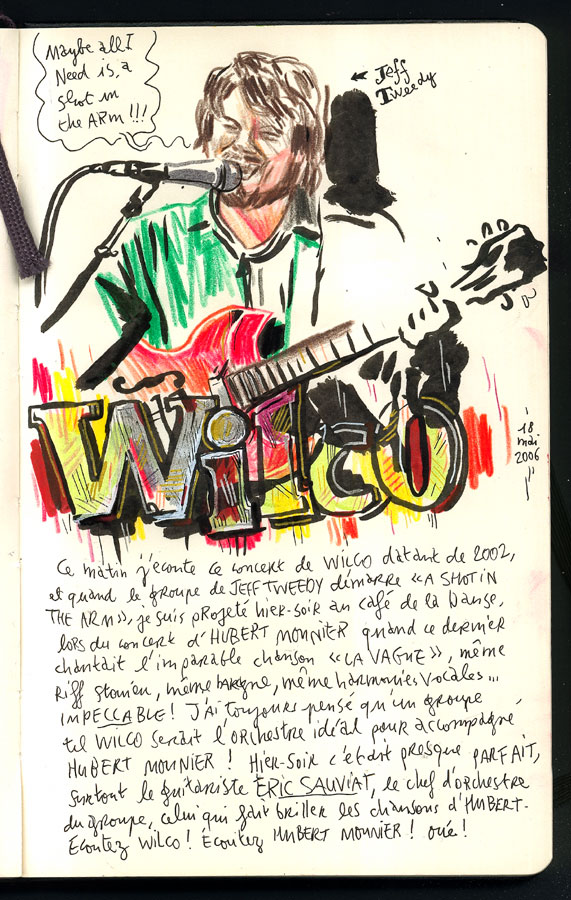 Maybe all I
Need is, a
shot in
the ARM !!!
Jeff
Tweedy
WilCO
18
mai
2006
Ce matin j'écoute ce concert de WILCO datant de 2002,
et quand le groupe de JEFF TWEEDY démarre «A SHOT IN
THE ARM», je suis projeté hier-soir au café de la Danse,
lors du concert d'HUBERT MOUNIER quand ce dernier
chantait l'imparable chanson «LA VAGUE», même
Riff stonien, même hargne, même harmonies vocales...
IMPECCABLE! J'ai toujours pensé qu'un groupe
tel WILCO serait l'orchestre idéal pour accompagner
HUBERT MOUNIER ! Hier-Soir c'était presque PARFAIT,
surtout le guitariste ERIC SAUVIAT, le chef d'orchestre
du groupe, celui qui fait briller les chansons d'HUBERT.
Écoutez WILCO! Écoutez HUBERT MOUNIER ! oué!